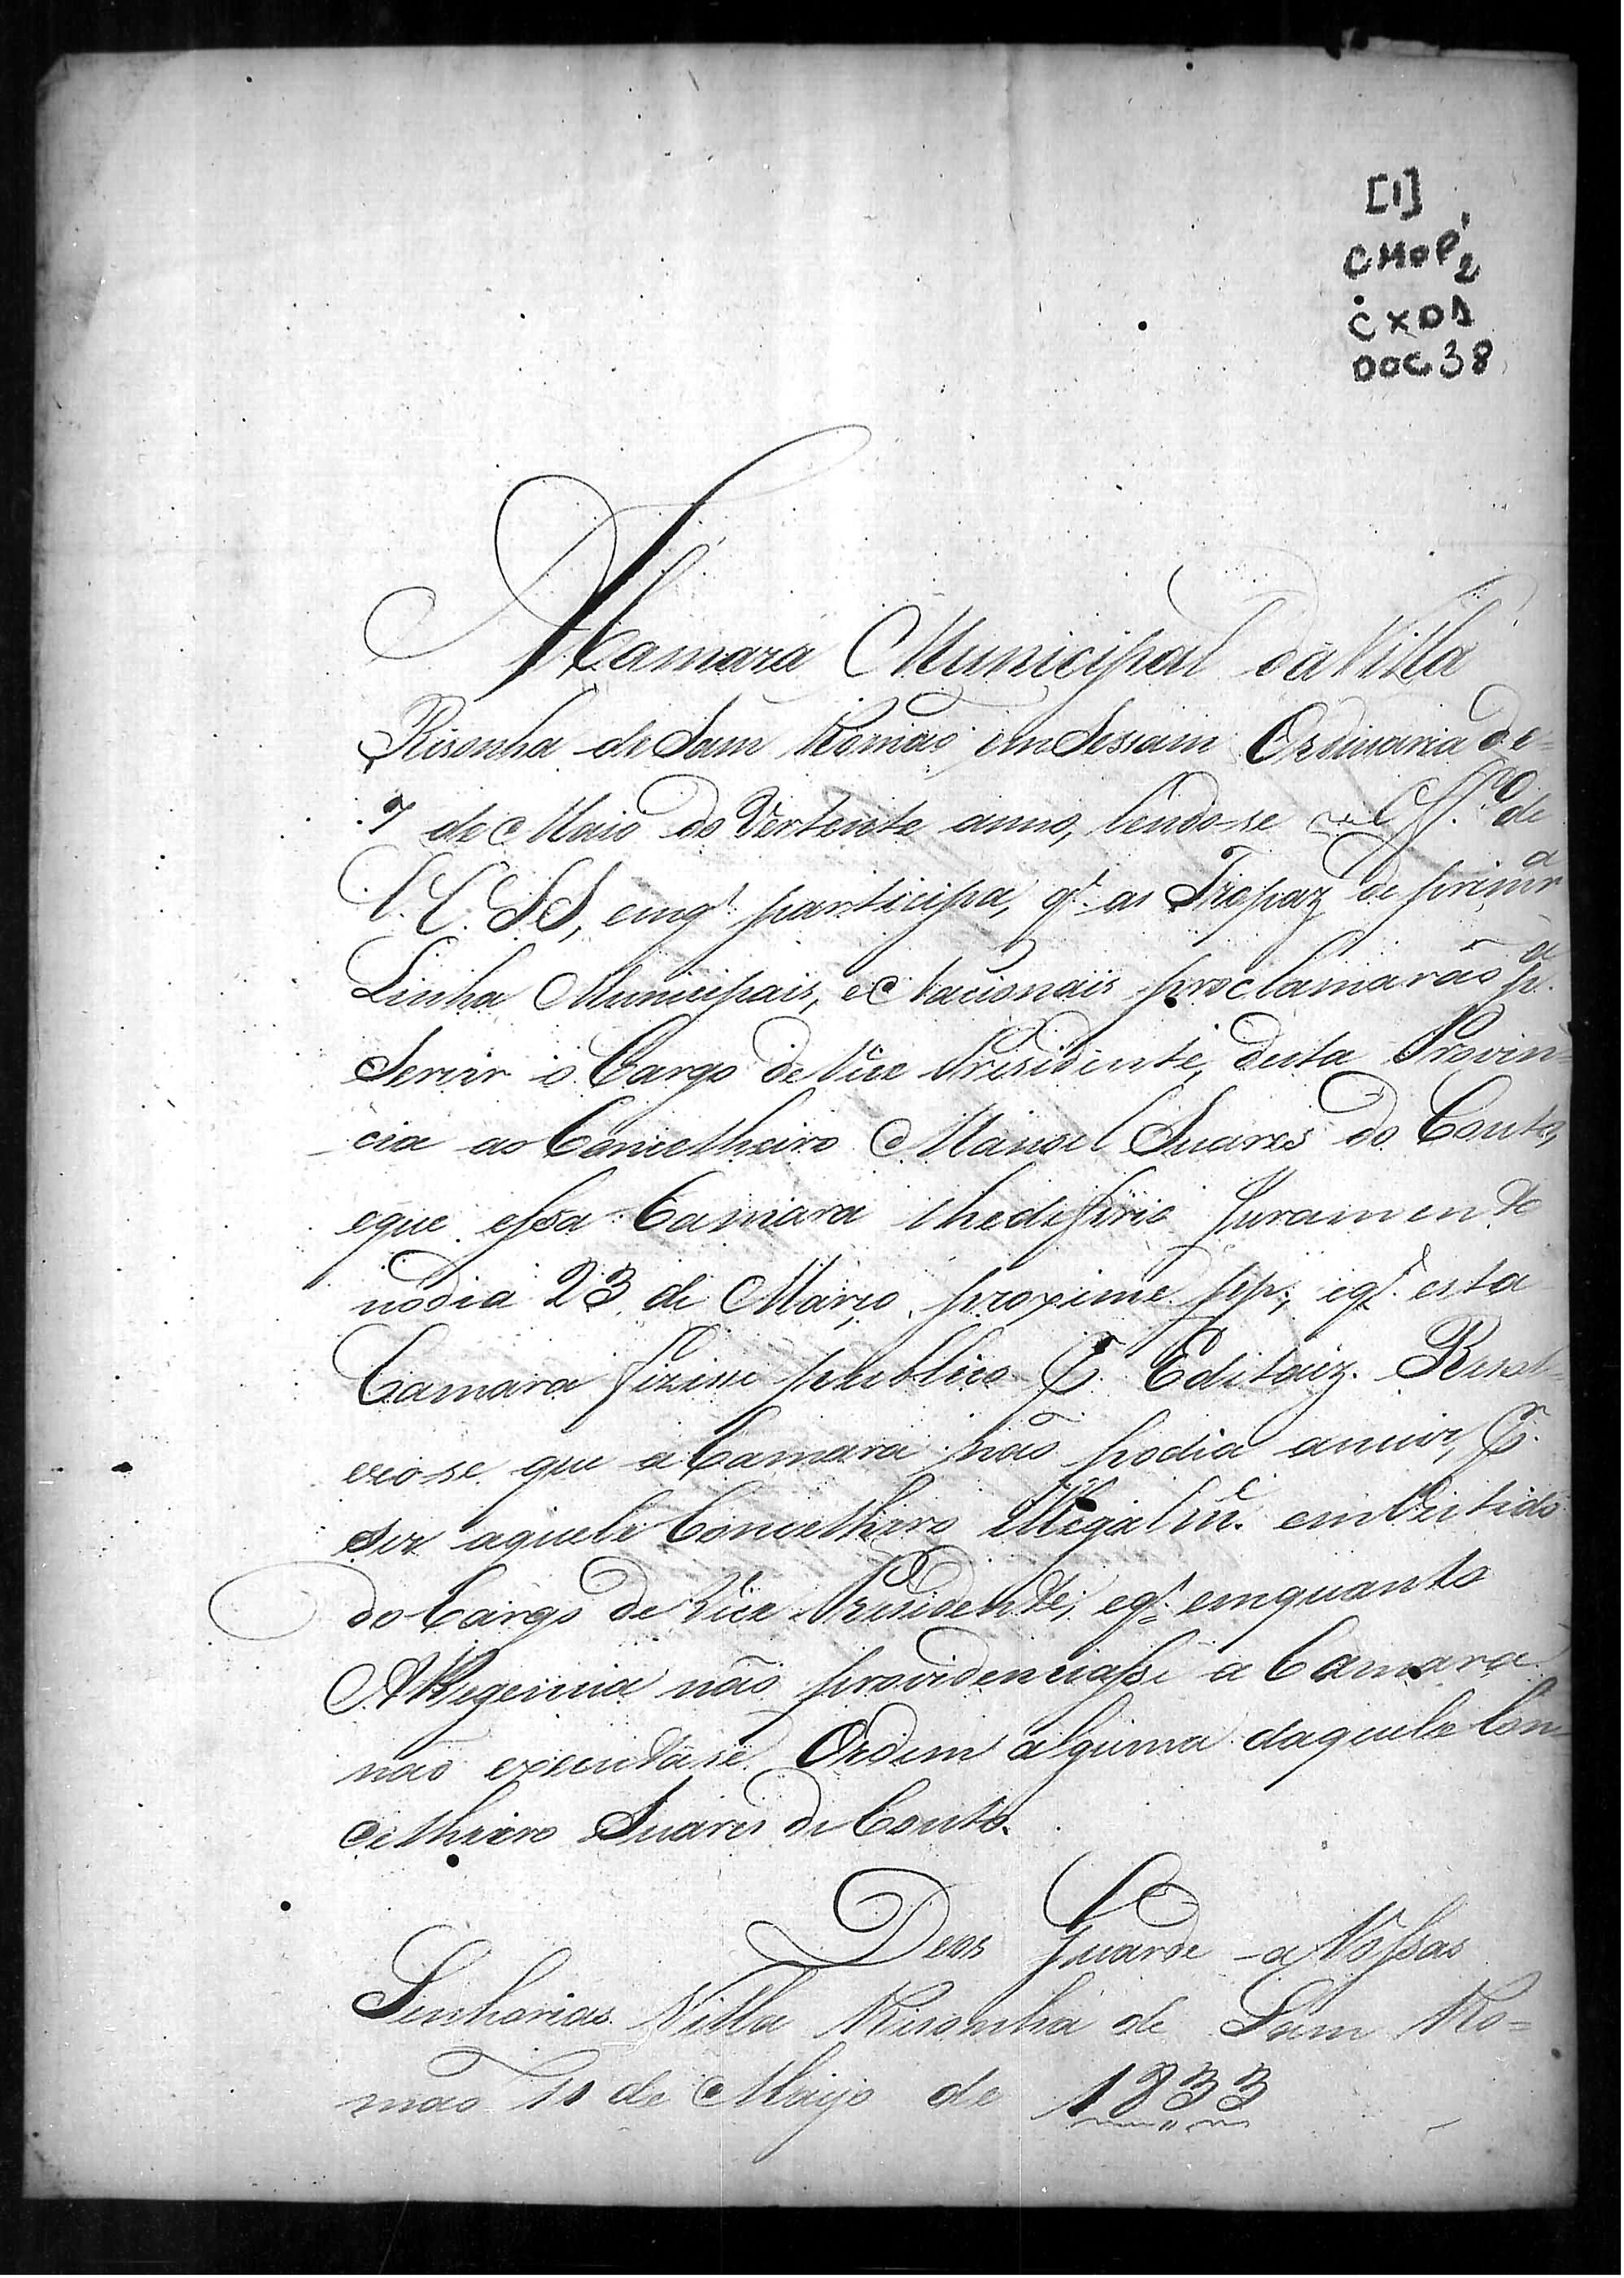 [1]
CMOP
2
CX01
DOC 38
A Camara Municipal da Villa
Risonha de Sam Romão em Sessam Ordinaria de=
7 de Maio do Vertente anno, lendo-se o Off.º de
V.V. SS, em q.' participa, q.' as Tropaz de primr.a
Linha Municipais, e Nacionais proclamarão p.a
Servir o Cargo de Vice Prisidente desta Provin=
cia ao Concelheiro Manoel Suares do Couto,
e que essa Camara lhe difirio Juramento
no dia 23 de Março proximo pp; e q.' esta
Camara fizisse publico P. Editaiz. Resol=
veo-se que a Camara não podia anuir, P.
ser aquele Concelheiro illegalm.e envistido
do Cargo de Vice Prisidente, e q.' emquanto
A Regencia não providenciasse a Camara
não executase Ordem alguma daquele Con=
celheiro Suares do Couto.
Deos Guarde a Vossas
Senhorias Villa Risonha de Sam Ro=
mão 10 de Mayo de 1833